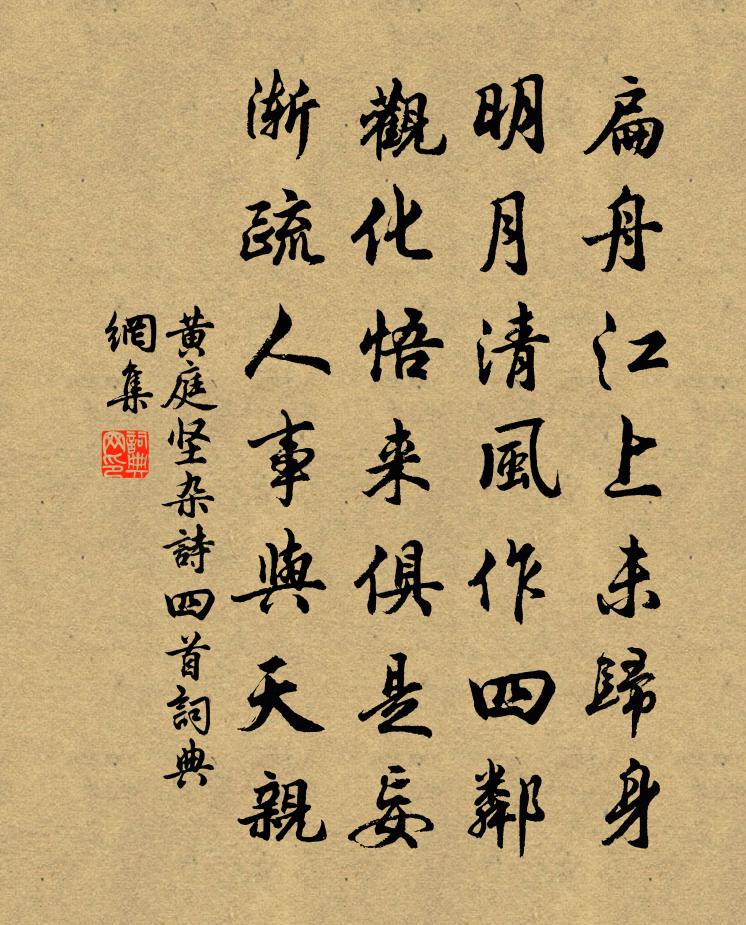 扁舟江上未歸身
明月清風作四鄰
觀化悟来俱是妄
渐疏人事與天親
黄庭坚杂詩四首詞典
網集
詞典
网印